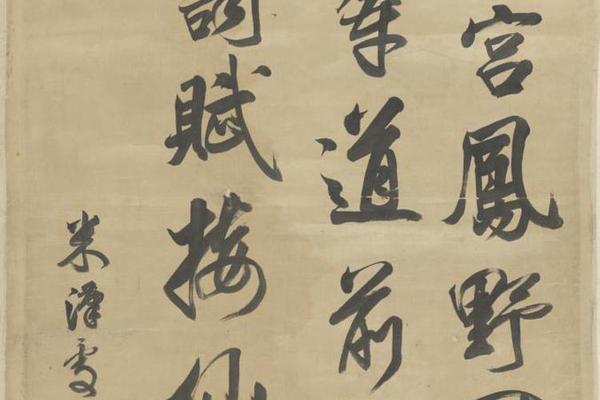 宮鳳野
輦道前
詞賦接
米漢雯